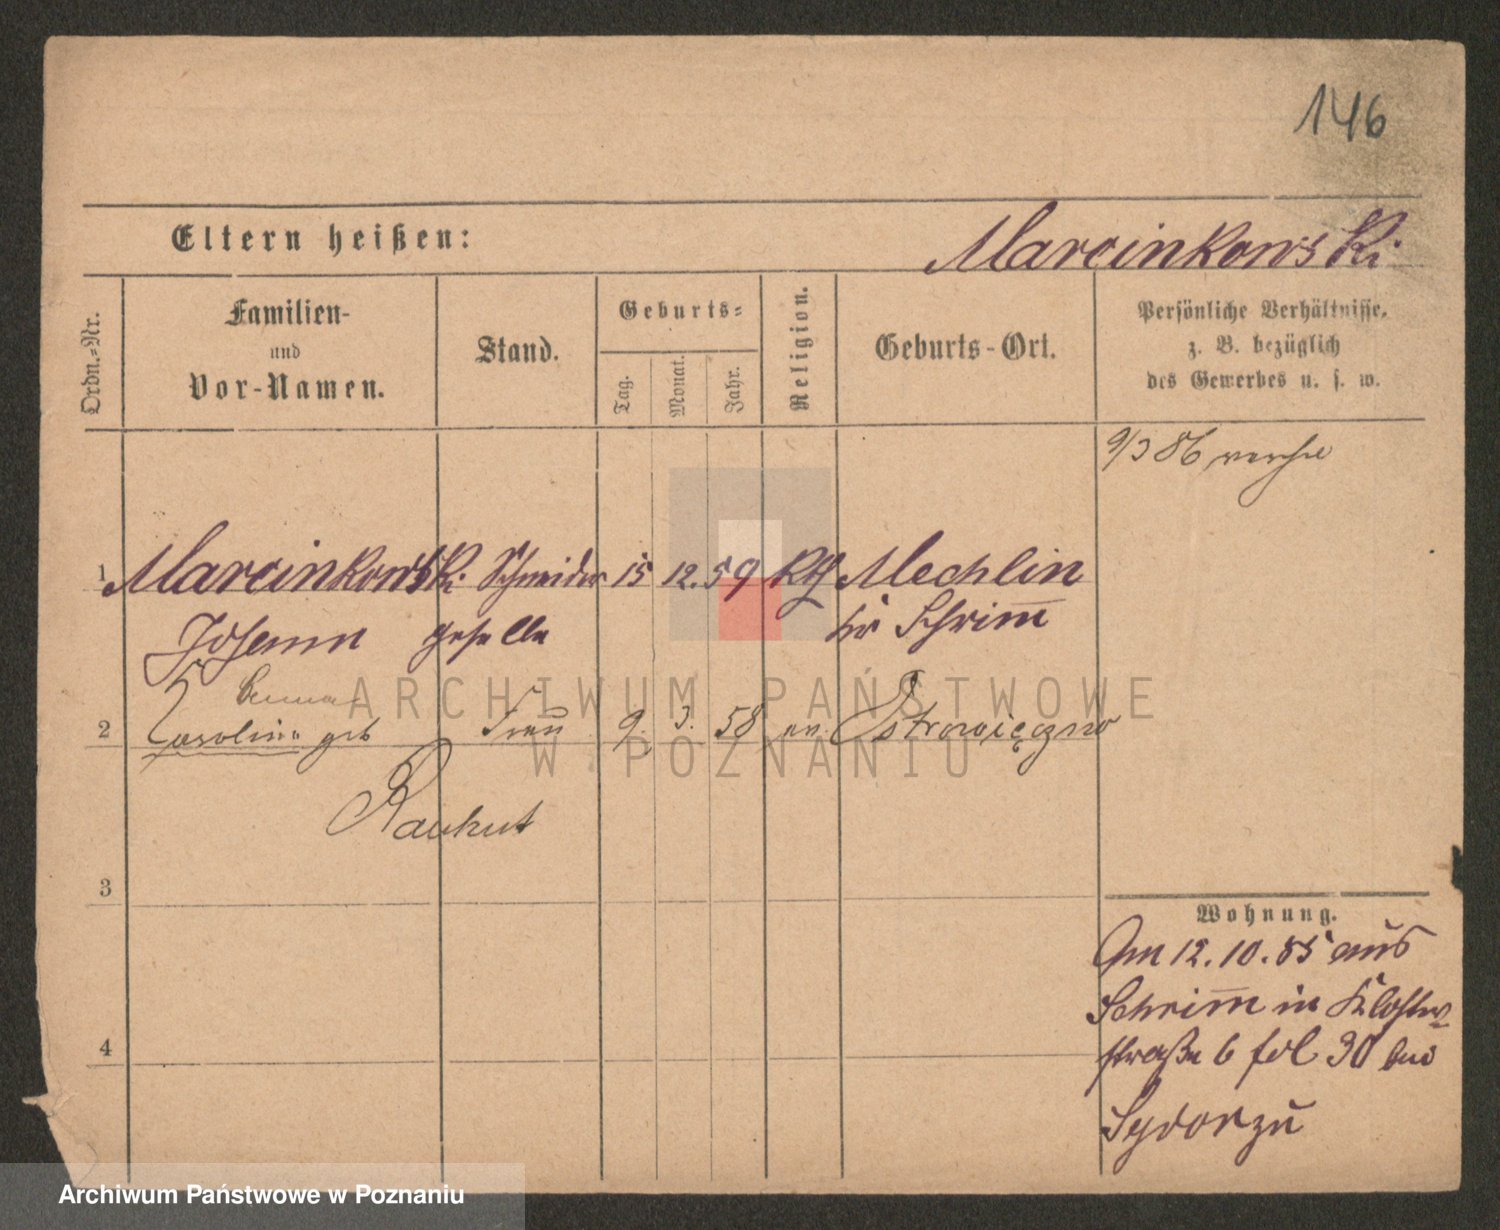 146
Eltern heißen:
Marcinkowski.
Ordn.-Nr.
Familien-
und
Vor-Namen.
Stand.
Geburts-
Tag.
Monat.
Jahr.
Religion.
Geburts-Ort.
Persönliche Verhältnisse,
z. B. bezüglich
des Gewerbes u. s. w.
9/3 86
1 Marcinkowski. Schneider 15 12. 59 Kth Mechlin
Johann geselle Kr Schrimm
2 Carolina geb Frau 9. 3. 58 ev. Ostrowieczno
Raukut
3
4
Wohnung.
Am 12. 10. 85 aus
Schrimm in Kloster-
straße 6 fol 30 bei
Sydor zu
ARCHIWUM PAŃSTWOWE
W POZNANIU
Archiwum Państwowe w Poznaniu